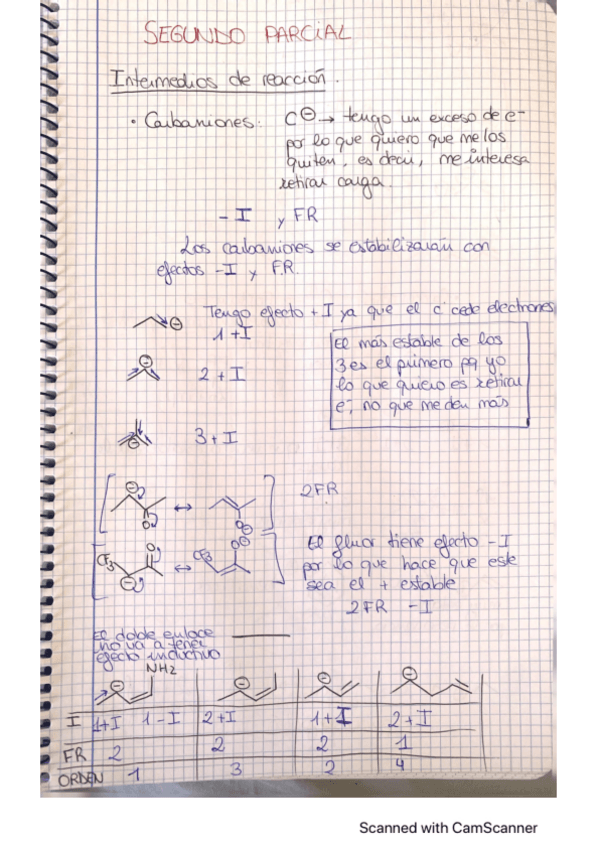 SEGUNDO PARCIAL
Intermedios de reacción.
• Carbaniones: C⊖ → tengo un exceso de e-
por lo que quiero que me los
quiten, es decir, me interesa
retirar carga.
- I y FR
Los carbaniones se estabilizarán con
efectos -I y FR.
Tengo efecto + I ya que el C cede electrones
1 + I
El más estable de los
3 es el primero pq yo
lo que quiero es retirar
e-, no que me den más
2 + I
3 + I
2FR
CF3
CF3
El fluor tiene efecto - I
por lo que hace que este
sea el + estable
2FR - I
El doble enlace
no va a tener
efecto inductivo
NH2
I 1+I 1-I 2+I 1+I 2+I
FR 2 2 2 1
ORDEN 1 3 2 4
Scanned with CamScanner